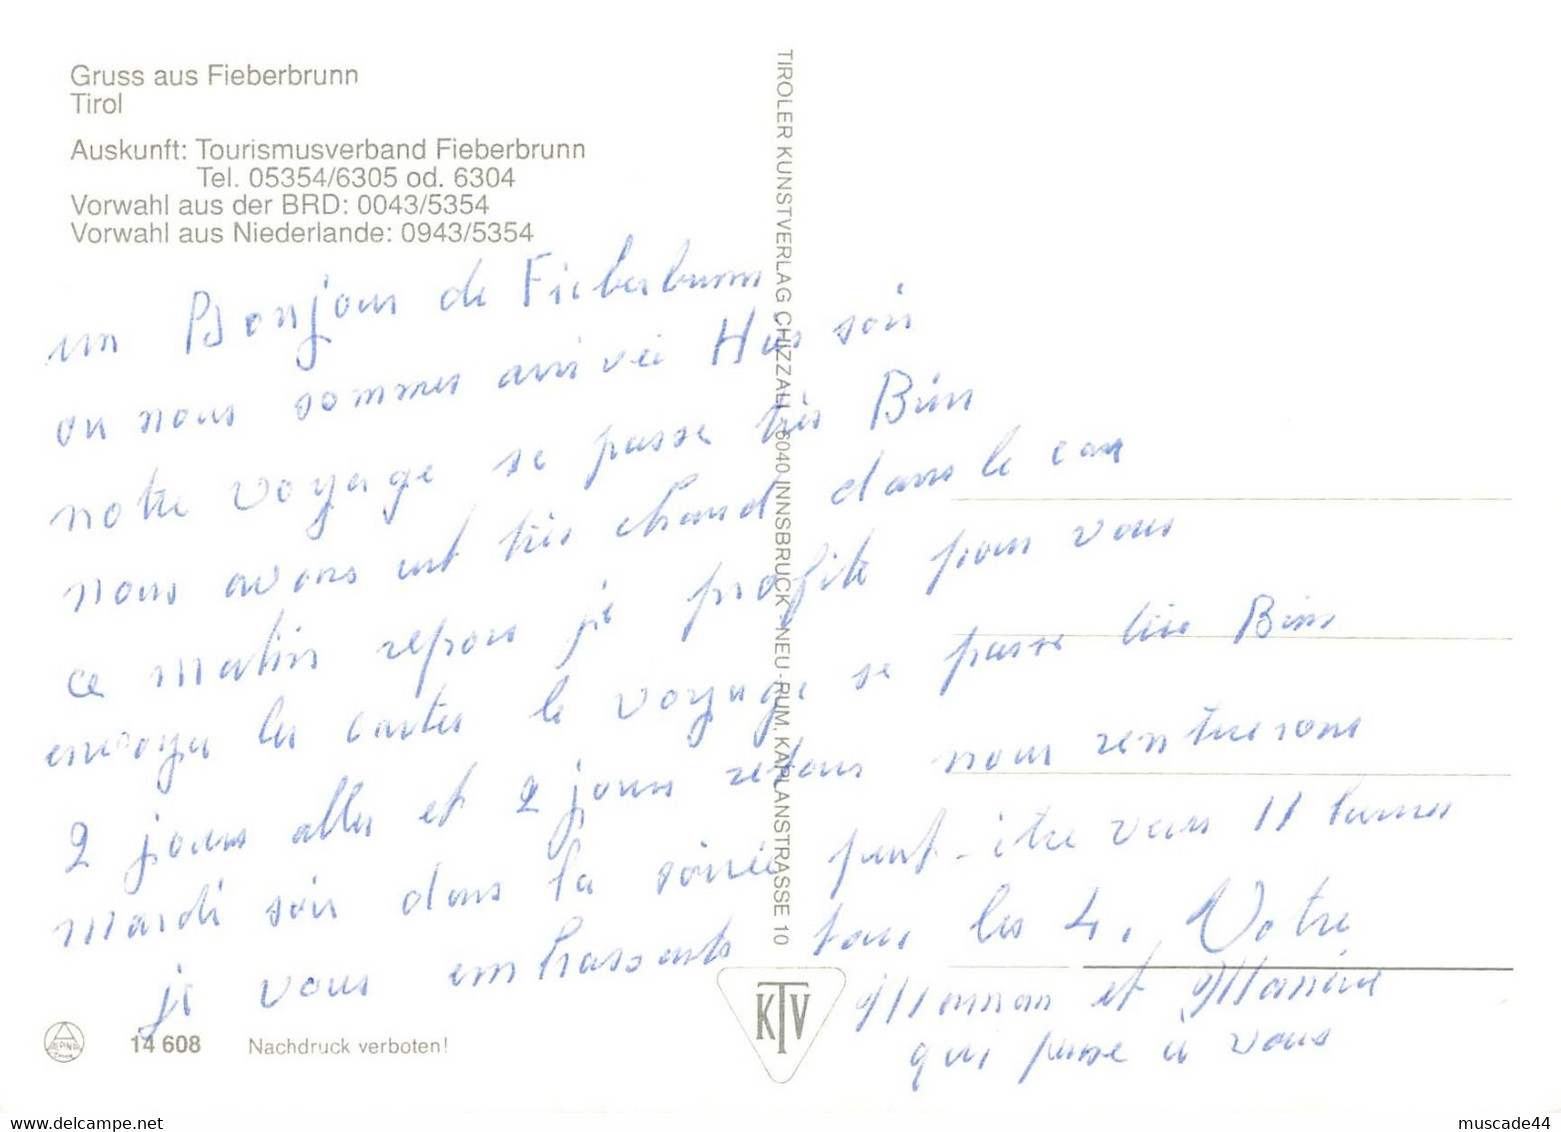 Gruss aus Fieberbrunn
Tirol
Auskunft: Tourismusverband Fieberbrunn
Tel. 05354/6305 od. 6304
Vorwahl aus der BRD: 0043/5354
Vorwahl aus Niederlande: 0943/5354
un Bonjour de Fieberbrunn
ou nous sommes arrivée Her soir
notre voyage se passe très Bien
nous avons eut très chaud dans le car
ce matin repos je profite pour vous
envoyer les cartes le voyage se passe très Bien
2 jours aller et 2 jours retour nous rentrerons
mardi soir dans la soirée peut-être vers 11 heures
je vous embrassent tous les 4. Votre
Maman et
qui pense à vous
TIROLER KUNSTVERLAG CHIZZALI · 6040 INNSBRUCK - NEU-RUM, KAPLANSTRASSE 10
KTV
ALPINA
14 608 Nachdruck verboten!
muscade44